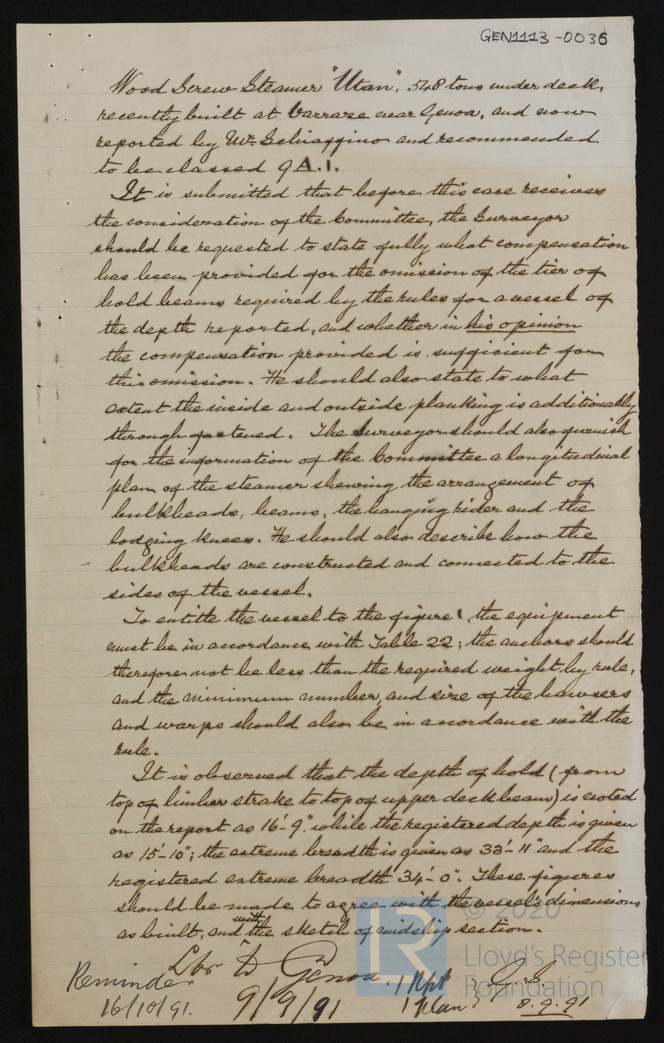 GEN1113-0036
Wood Screw Steamer "Utan", 548 tons under deck,
recently built at Varraze near Genoa, and now
reported by Mr. Schiaffino and recommended
to be classed 9 A.1.
It is submitted that before this case receives
the consideration of the Committee, the Surveyor
should be requested to state fully what compensation
has been provided for the omission of the tier of
hold beams required by the rules for a vessel of
the depth reported, and whether in his opinion
the compensation provided is sufficient for
this omission. He should also state to what
extent the inside and outside planking is additionally
through fastened. The Surveyor should also furnish
for the information of the Committee a longitudinal
plan of the steamer shewing the arrangement of
bulkheads, beams, the hanging rider and the
lodging knees. He should also describe how the
bulkheads are constructed and connected to the
sides of the vessel.
To entitle the vessel to the figure 1 the equipment
must be in accordance with Table 22; the anchors should
therefore not be less than the required weight by rule,
and the minimum number, and size of the hawsers
and warps should also be in accordance with the
rule.
It is observed that the depth of hold (from
top of limber strake to top of upper deck beam) is noted
on the report as 16'-9" while the registered depth is given
as 15'-10"; the extreme breadth is given as 33'-11" and the
registered extreme breadth 34'-0". These figures
should be made to agree with the vessel's dimensions
as built, and with the sketch of midship section.
Lbr to Genoa. 1 Rpt
9/9/91 1 Plan
Reminder
16/10/91.
8.9.91
© 2020
LR
Lloyd's Register
Foundation